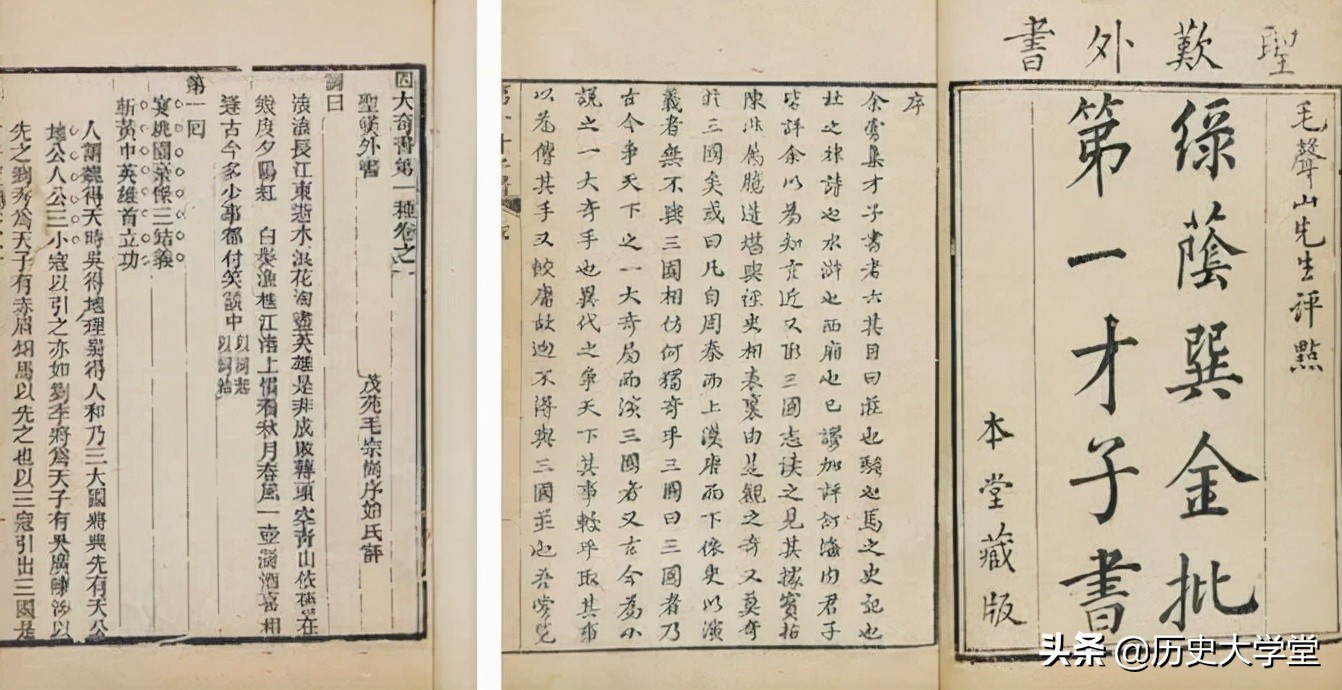 聖歎外書
毛聲山先生評點
綠蔭巽金批
第一才子書
本堂藏版
序
余嘗集才子書者六其目曰莊也騷也馬之史記也
杜之律詩也水滸也西廂也已謬加評訂海內君子
皆許余以為知言近又取三國志读之見其據實指
陳非屬臆造堪與經史相表裏由是觀之奇又莫奇
於三國矣或曰凡自周秦而上漢唐而下依史以演
義者無不與三國相仿何獨奇乎三國曰三國者乃
古今爭天下之一大奇局而演三國者又古今為小
說之一大奇手也異代之爭天下其事較平取其事
以為傳其手又較庸故迥不得與三國並也吾嘗覽
四大奇書第一種卷之一
聖嘆外書
茂苑毛宗崗序始氏評
詞曰
滾滾長江東逝水浪花淘盡英雄是非成敗轉頭空青山依舊在
幾度夕陽紅 白髮漁樵江渚上慣看秋月春風一壺濁酒喜相
逢古今多少事都付笑談中 以詞起以詞結
第一回
宴桃園豪傑三結義
斬黃巾英雄首立功
人謂魏得天時吳得地理蜀得人和乃三大國將興先有天公
地公人公三小寇以引之亦如劉季將為天子有吳廣陳涉以
先之劉秀為天子有赤眉銅馬以先之也以三寇引出三國是
头条 @历史大学堂